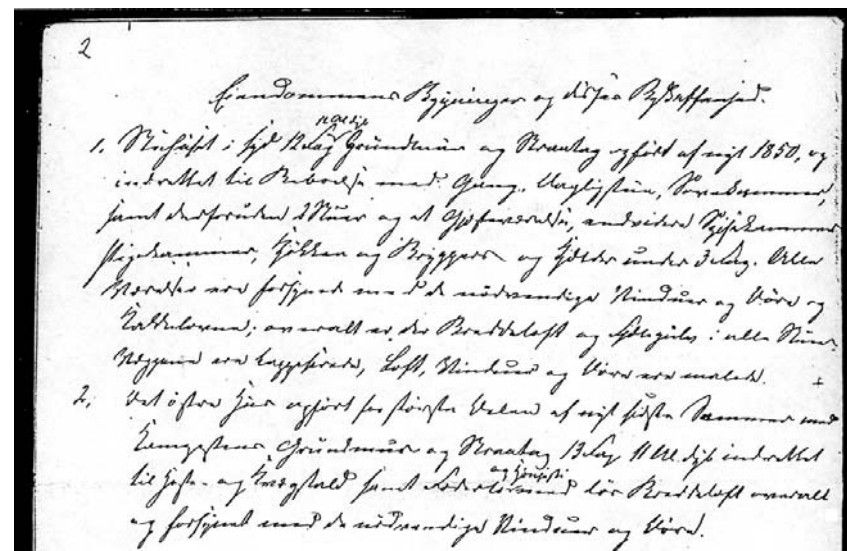 2
Eiendommens Bygninger og disses Beskaffenhed.
1. Stuehuset i syd 12 Fag Grundmuur og Straatag opført af nyt 1850, og
indrettet til Beboelse med: Gang, Dagligstue, Sovekammer,
samt desforuden 2 Stuer og et Gjesteværelse, endvidere Spisekammer
Pigekammer, Kjøkken og Bryggers og Kjelder under 3 Fag. Alle
Værelser ere forsynede med de nødvendige Vinduer og Døre og
Kakkelovne; overalt er der Bræddeloft og i alle Stuer.
Væggene ere tappeserede, Loft, Vinduer og Døre ere malede.
2, Det østre Huus opført for største Delen af nyt sidste Sommer med
Kampesteens Grundmuur og Straatag 13 Fag 11 Al. dyb indrettet
til Heste- og Qvægstald samt og Bræddeloft overalt
og forsynet med de nødvendige Vinduer og Døre.